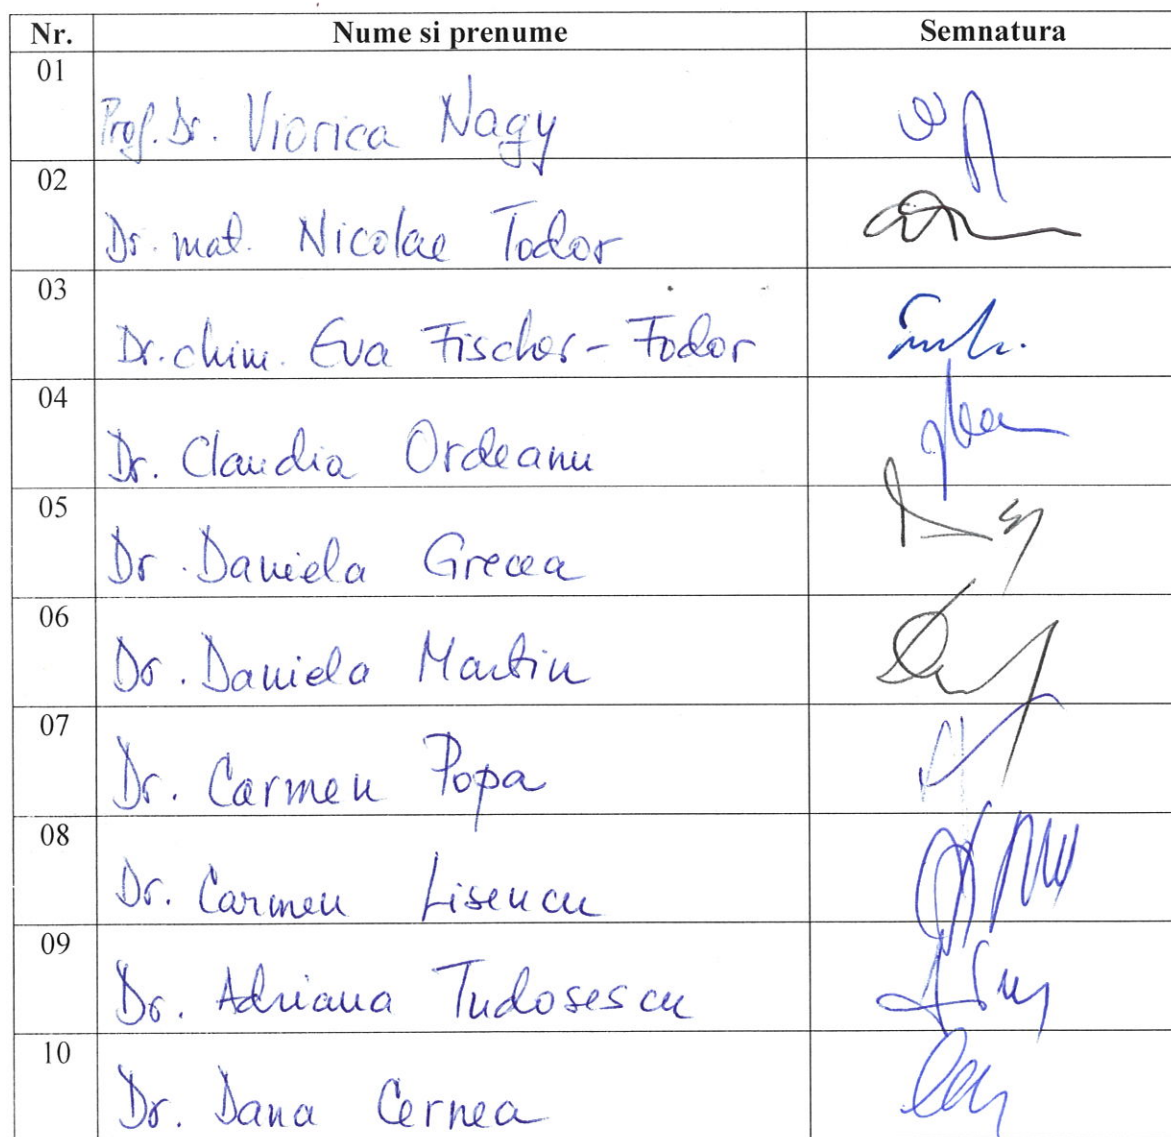 Nr. Nume si prenume Semnatura
01 Prof. Dr. Viorica Nagy
02 Dr. mat. Nicolae Todor
03 Dr. chim. Eva Fischer-Fodor
04 Dr. Claudia Ordeanu
05 Dr. Daniela Grecea
06 Dr. Daniela Martin
07 Dr. Carmen Popa
08 Dr. Carmen Lisencu
09 Dr. Adriana Tudosescu
10 Dr. Dana Cernea